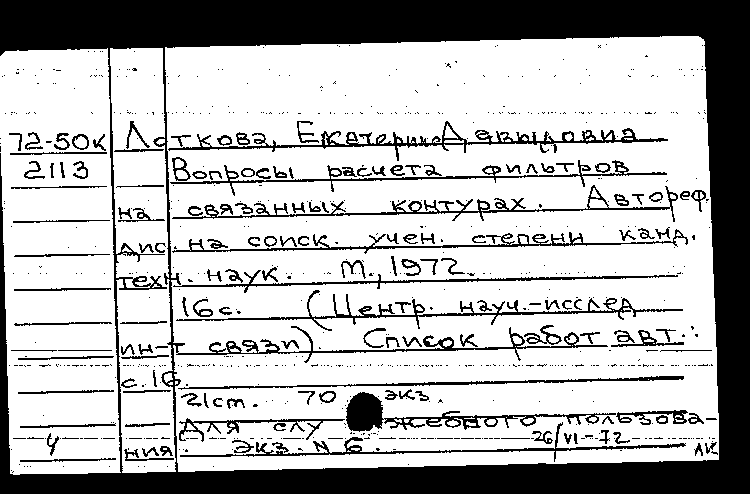 72-50к Лоткова, Екатерина Давыдовна
2113 Вопросы расчета фильтров
на связанных контурах. Автореф.
дис. на соиск. учен. степени канд.
техн. наук. М., 1972.
16 с. (Центр. науч.-исслед
ин-т связи). Список работ авт.:
с. 16.
21 см. 70 экз.
Для служебного пользова-
ния. Экз. N 6. 26/VI-72
4 АК